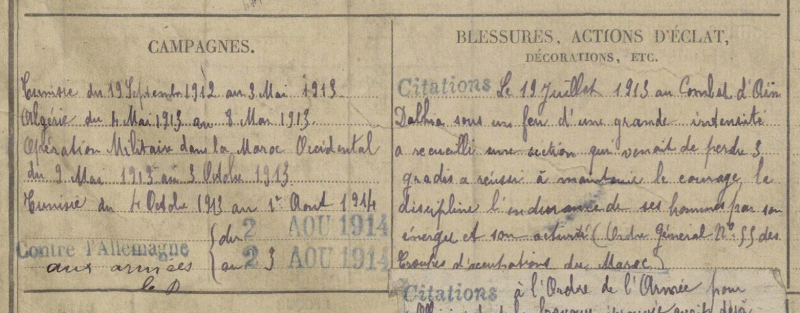 CAMPAGNES.
Tunisie du 19 Septembre 1912 au 3 Mai 1913
Algérie du 4 Mai 1913 au 8 Mai 1913
Opération Militaire dans la Maroc Occidental
du 9 Mai 1913 au 3 Octobre 1913
Tunisie du 4 Octobre 1913 au 1er Aout 1914
Contre l'Allemagne
aux armées
du 2 AOU 1914
au 23 AOU 1914
BLESSURES, ACTIONS D'ÉCLAT,
DÉCORATIONS, ETC.
Citations Le 19 Juillet 1913 au Combat d'Ain
sous un feu d'une grande intensité
a recueilli une section qui venait de perdre 3
gradés a réussi à maintenir le courage la
discipline l'endurance de ses hommes par son
énergie et son activité (Ordre Général N° 55 des
Troupes d'occupations du Maroc)
Citations à l'Ordre de l'Armée pour